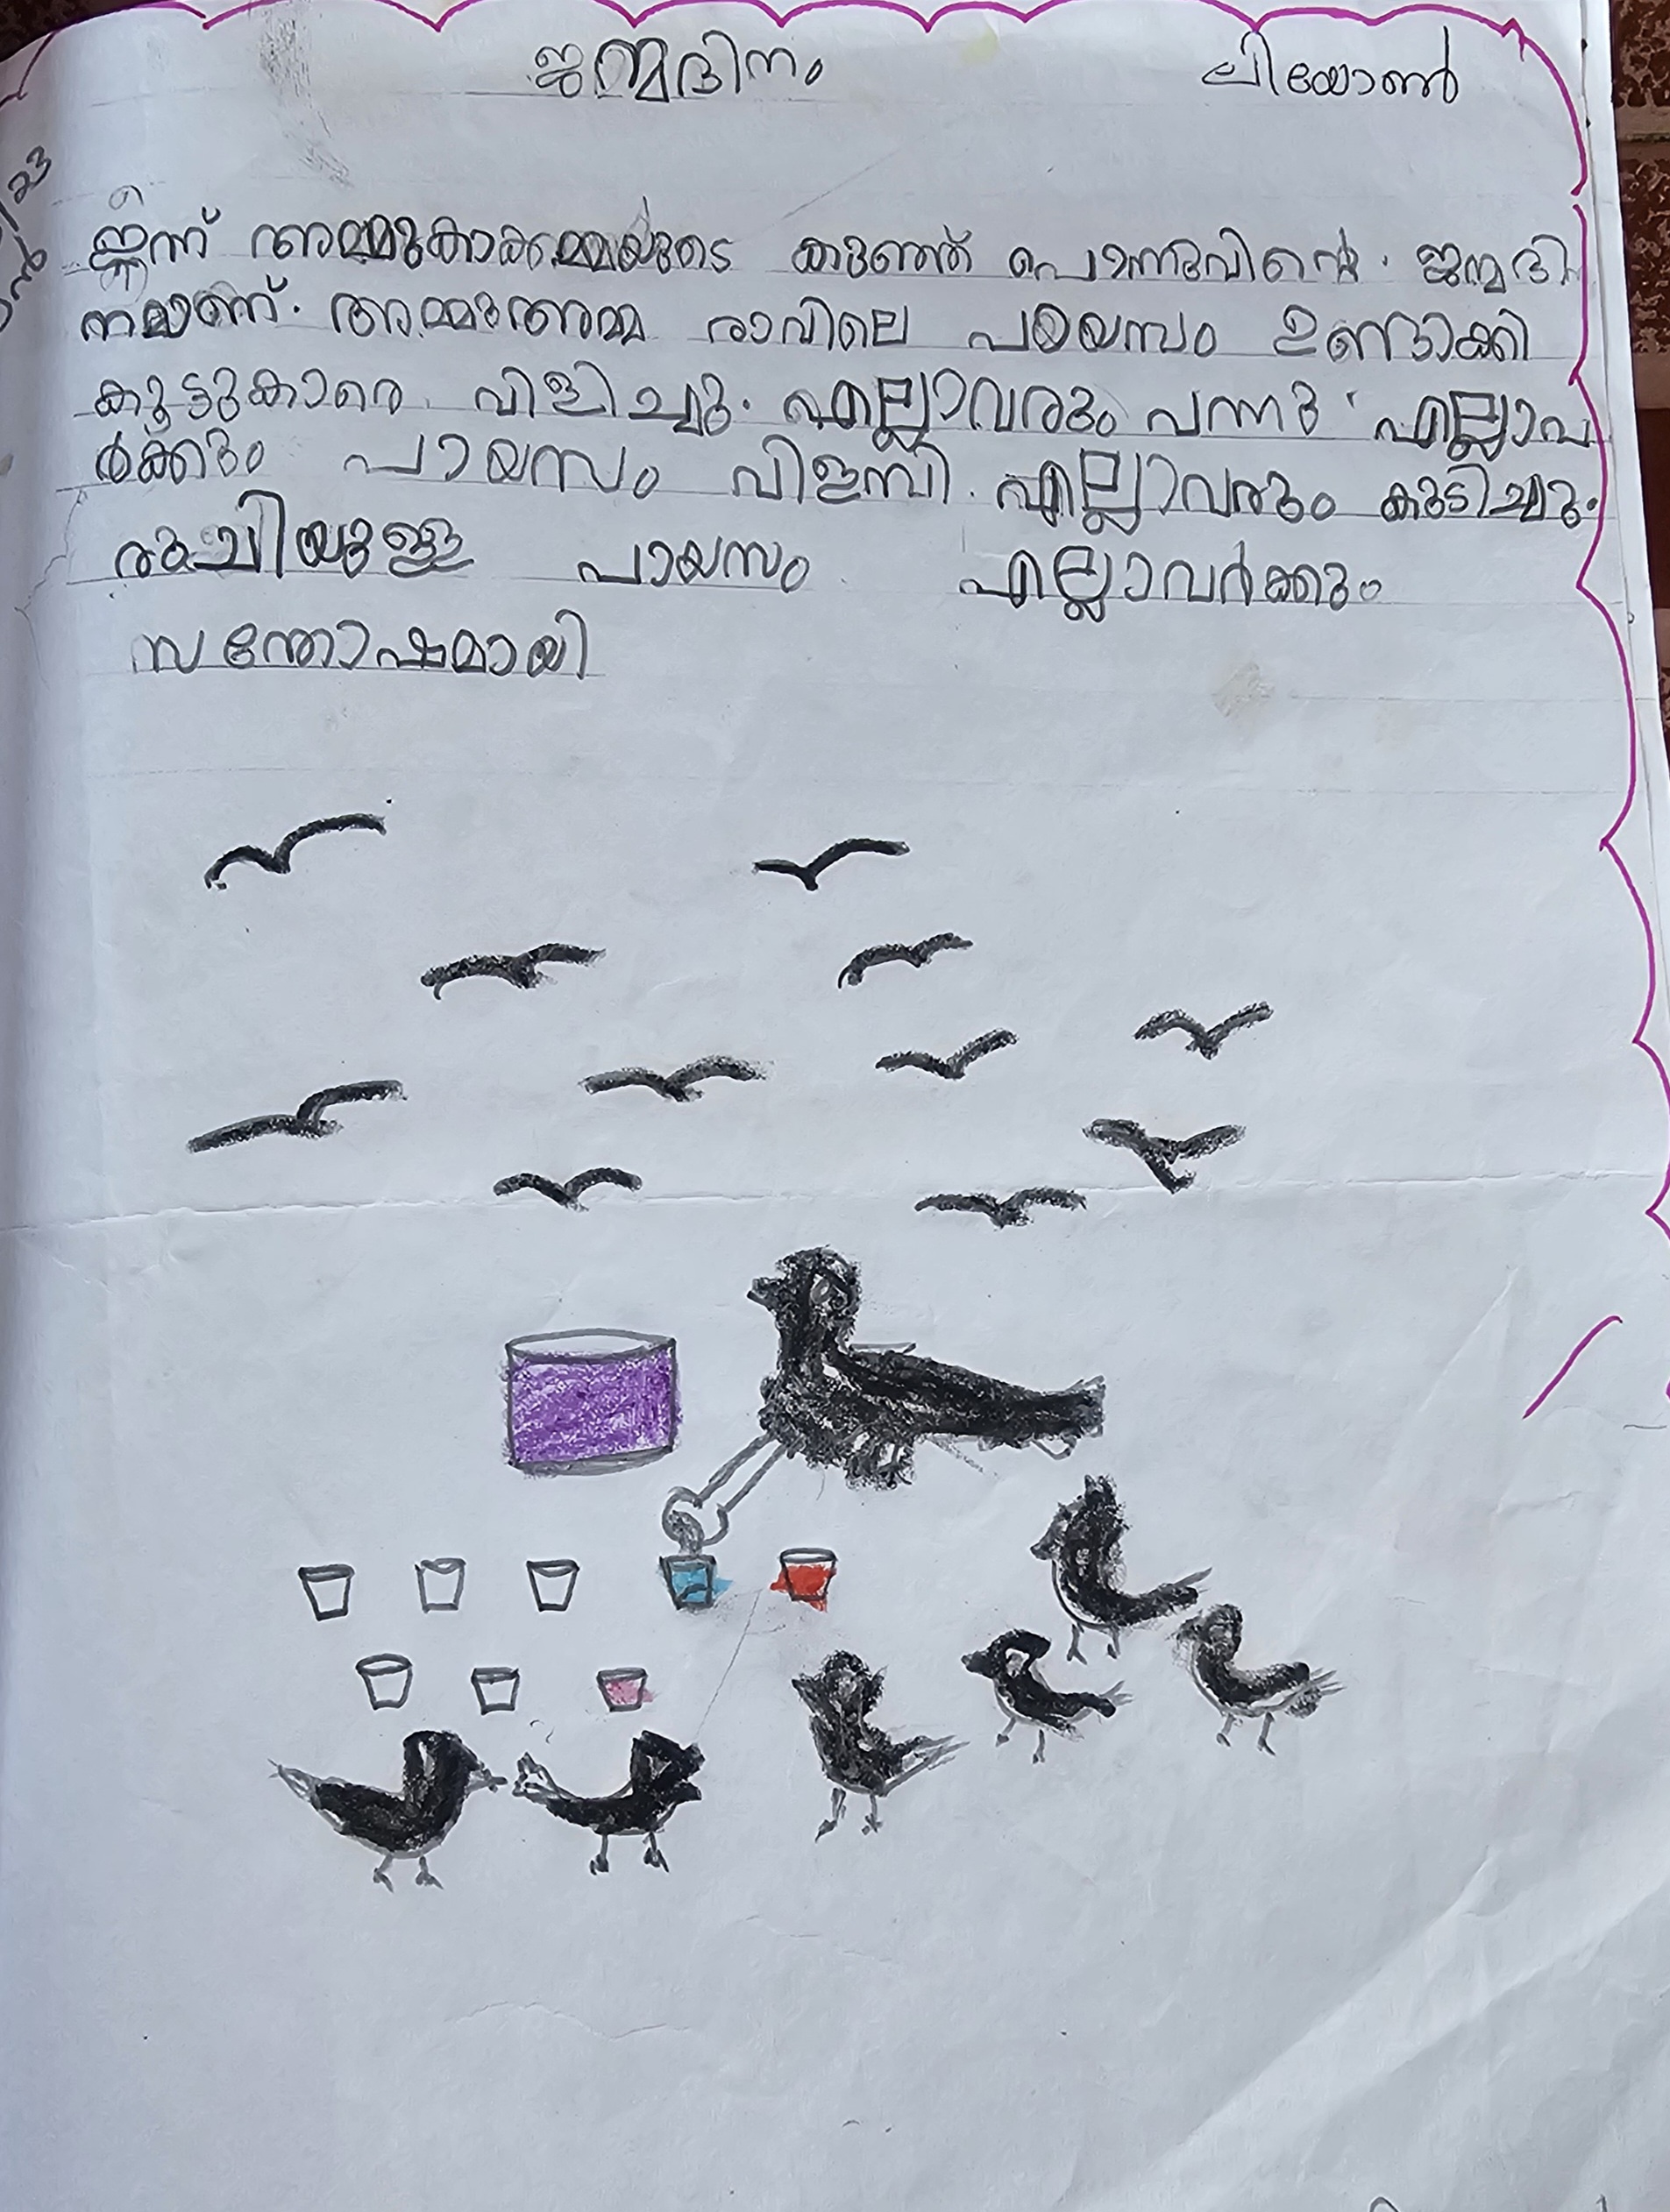 ജന്മദിനം ലിയോൺ
ഇന്ന് അമ്മുകാക്കമ്മയുടെ കുഞ്ഞ് പൊന്നുവിന്റെ. ജന്മദി
നമാണ്. അമ്മുഅമ്മ രാവിലെ പായസം ഉണ്ടാക്കി
കൂട്ടുകാരെ വിളിച്ചു. എല്ലാവരും പന്നു എല്ലാവ
ർക്കും പായസം വിളമ്പി. എല്ലാവരും കുടിച്ചു.
രുചിയുള്ള പായസം എല്ലാവർക്കും
സന്തോഷമായി